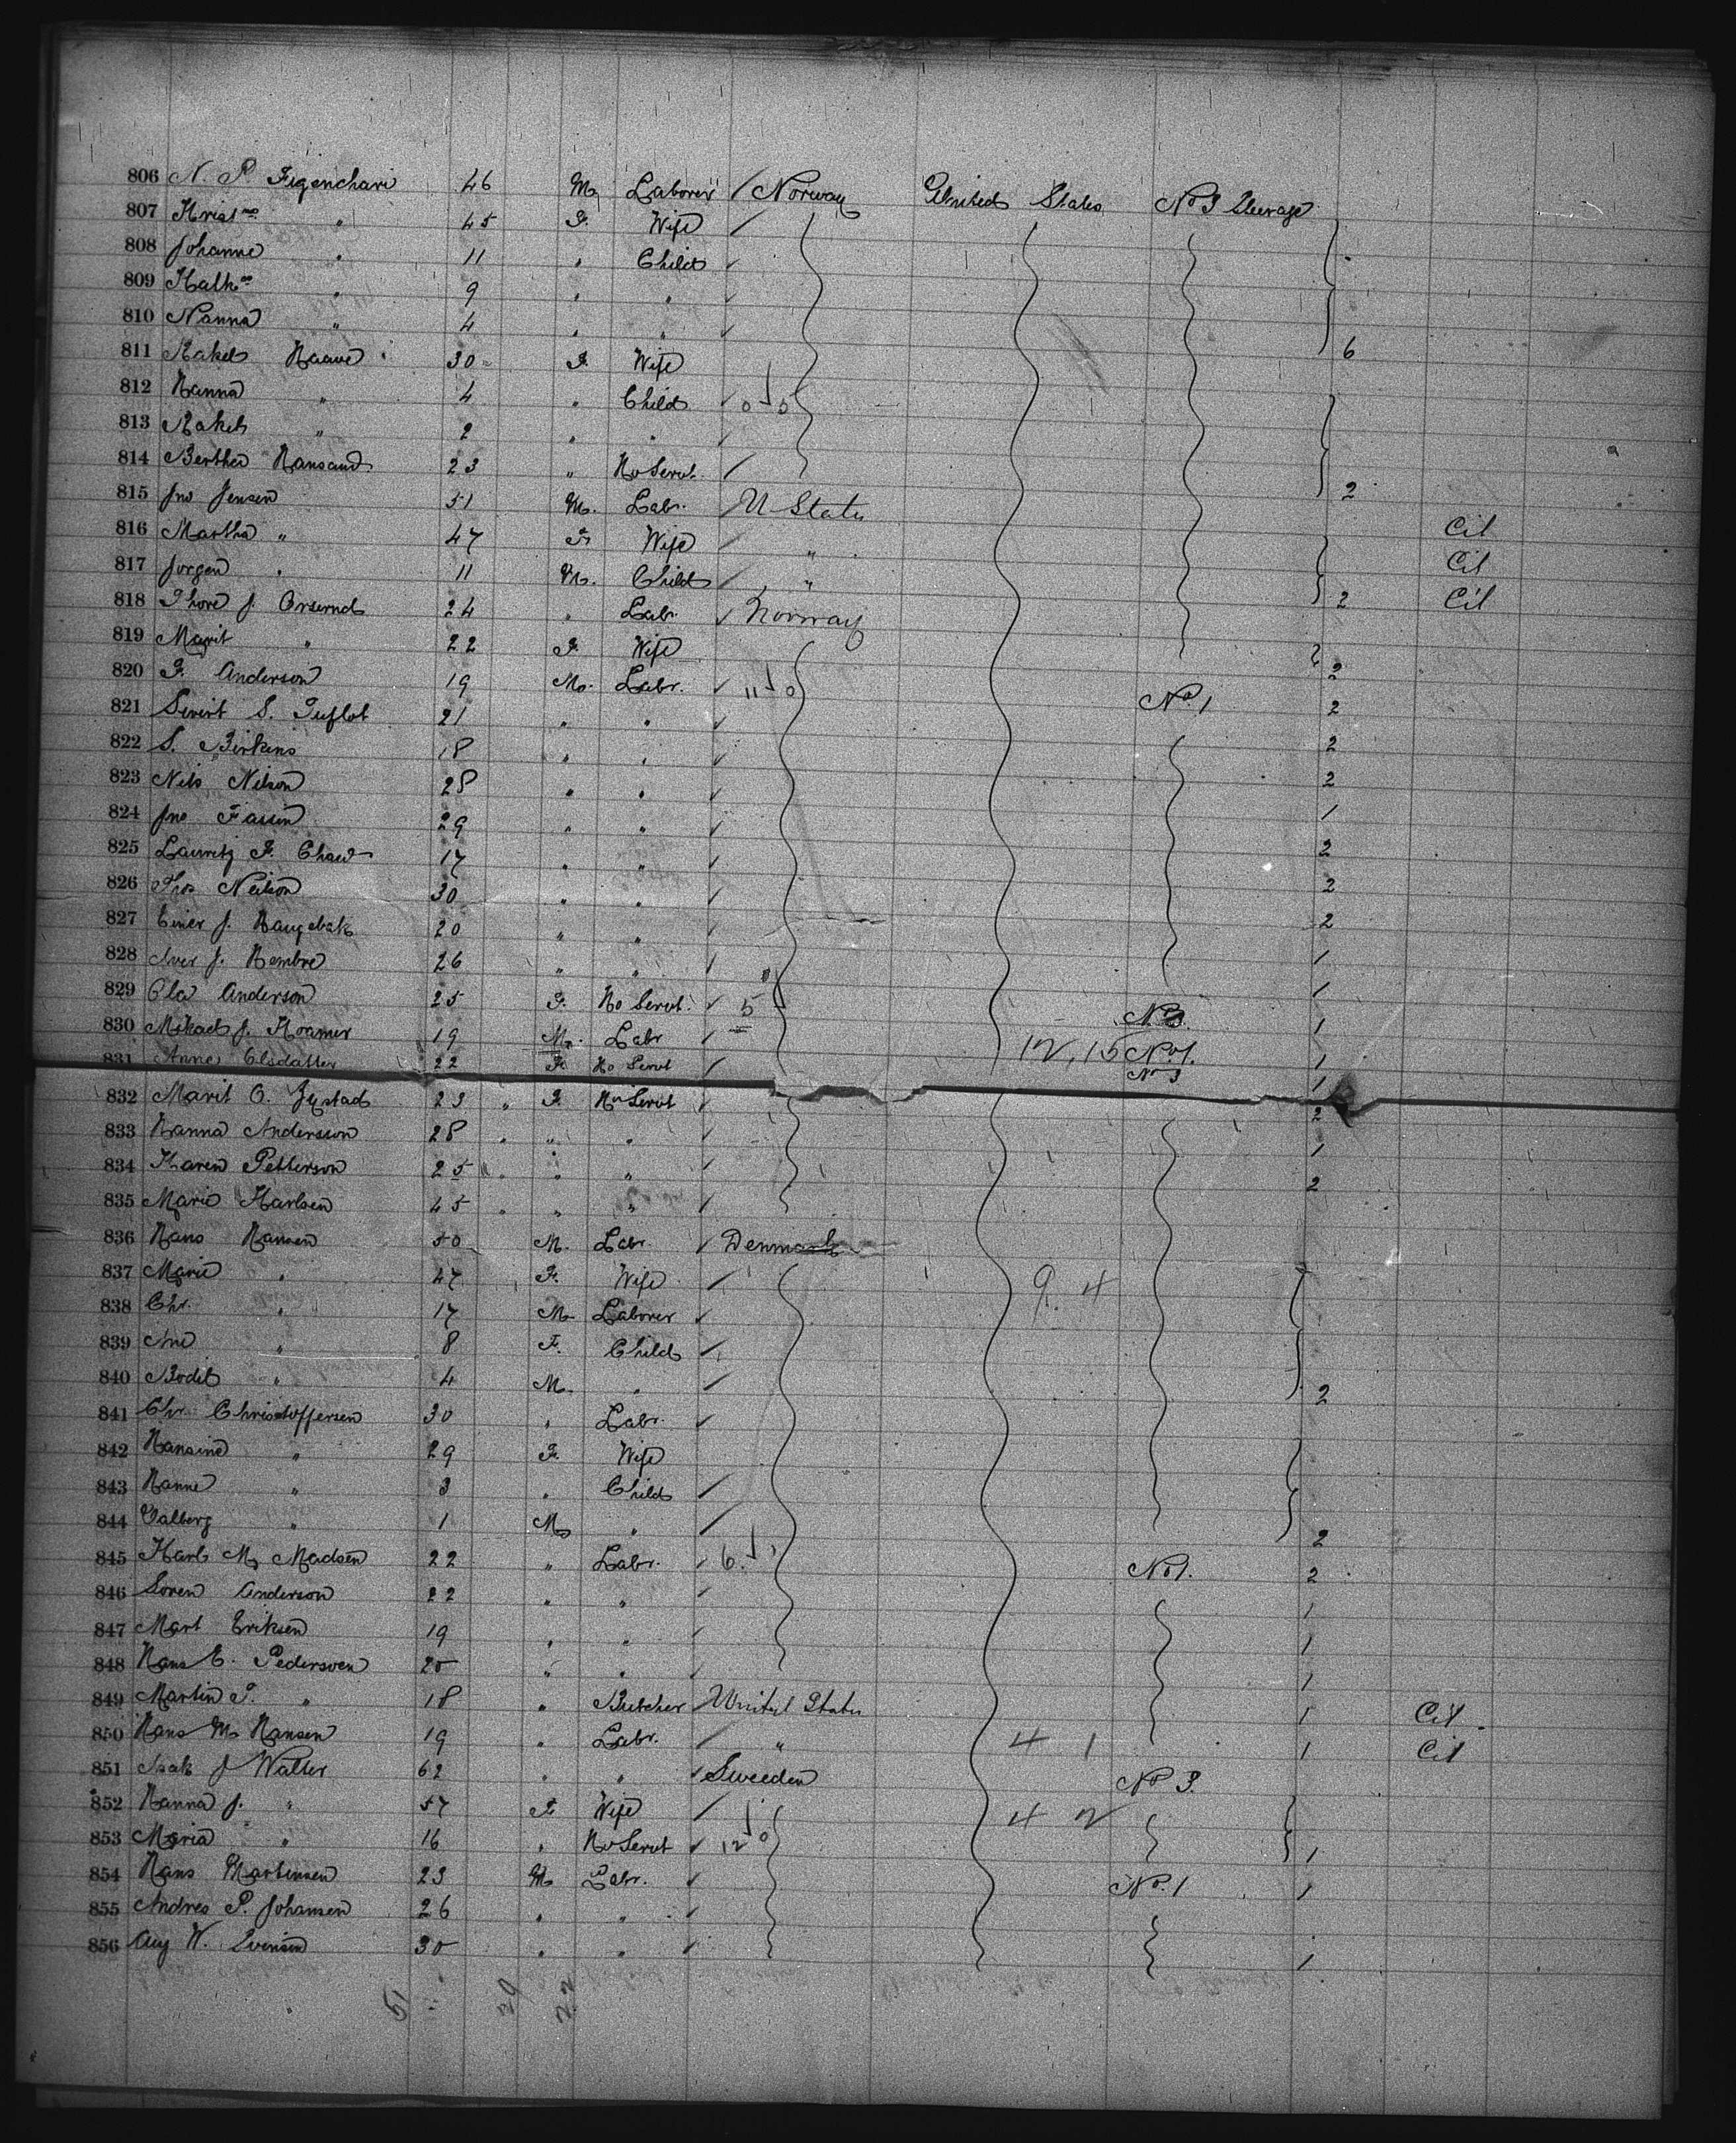 806 N. P. Figenchari 46 M. Laborer / Norway United States No 3 Steerage
807 Krist ne " 45 F. Wife /
808 Johanne " 11 " Child ✓
809 Kath ne " 9 " " ✓
810 Nanna " 4 " " ✓ 6
811 Rakel Haave 30 F. Wife
812 Hanna " 4 " Child ✓
813 Rakel " 2 " " ✓
814 Berthe Hansand 23 " Ho Servt. / 2
815 Jno Jensen 51 M. Labr. / U States Cit
816 Martha " 47 F. Wife / " Cit
817 Jorgen " 11 M. Child / " 2 Cit
818 Thore J. 24 " Labr. ✓ Norway
819 Marit " 22 F. Wife 2
820 F. Anderson 19 M. Labr. ✓ 11 0 No 1 2
821 Sivert S. Tuflot 21 " " ✓ 2
822 S. Birkins 18 " " ✓ 2
823 Nels Nelson 28 " " ✓ 1
824 Jno Fassin 29 " " ✓ 2
825 Lauritz F. 17 " " ✓ 2
826 Thos Neilson 30 " " ✓ 2
827 Einer J. Haugebak 20 " " ✓ 1
828 Iver J. Hembre 26 " " / 1
829 Ola Anderson 25 F. Ho Servt. ✓ 5 No 3. 1
830 Mikael J. Kramer 19 M. Labr / 12, 15 No 1. 1
831 Anne Olsdatter 22 F. Ho Servt / No 3 1
832 Marit O. Jystad 23 " F. Ho Servt ✓ 2
833 Hanna Andersson 28 " " " / 1
834 Karen Petterson 25 " " " / 2
835 Marie Karlsen 45 " " " /
836 Hans Hansen 50 M. Labr. ✓ Denmark
837 Marie " 47 F. Wife / 9. 4
838 Chr. " 17 M. Laborer ✓
839 Ane " 8 F. Child /
840 Bodil " 4 M. " / 2
841 Chr. Christoffersen 30 " Labr. ✓
842 Hansine " 29 F. Wife
843 Hanne " 3 " Child /
844 Valberg " 1 M. " / 2
845 Karl M. Madsen 22 " Labr. ✓ 6 1 No 1. 2
846 Soren Anderson 22 " " ✓ 1
847 Mart Eriksen 19 " " / 1
848 Hans E. Pedersven 25 " " ✓ 1
849 Martin P. " 18 " Butcher / United States 1 Cit
850 Hans M. Hansen 19 " Labr. / " 4 1 1 Cit
851 Isak J Walter 62 " " ✓ Sweeden No 3.
852 Hanna J. " 57 F. Wife / 4 2
853 Maria " 16 " Ho Servt ✓ 12 0 1
854 Hans Martensen 23 M. Labr. ✓ No. 1 1
855 Andres P. Johansen 26 " " ✓
856 Aug W. Svensen 30 " " ✓ 1
51 29 22